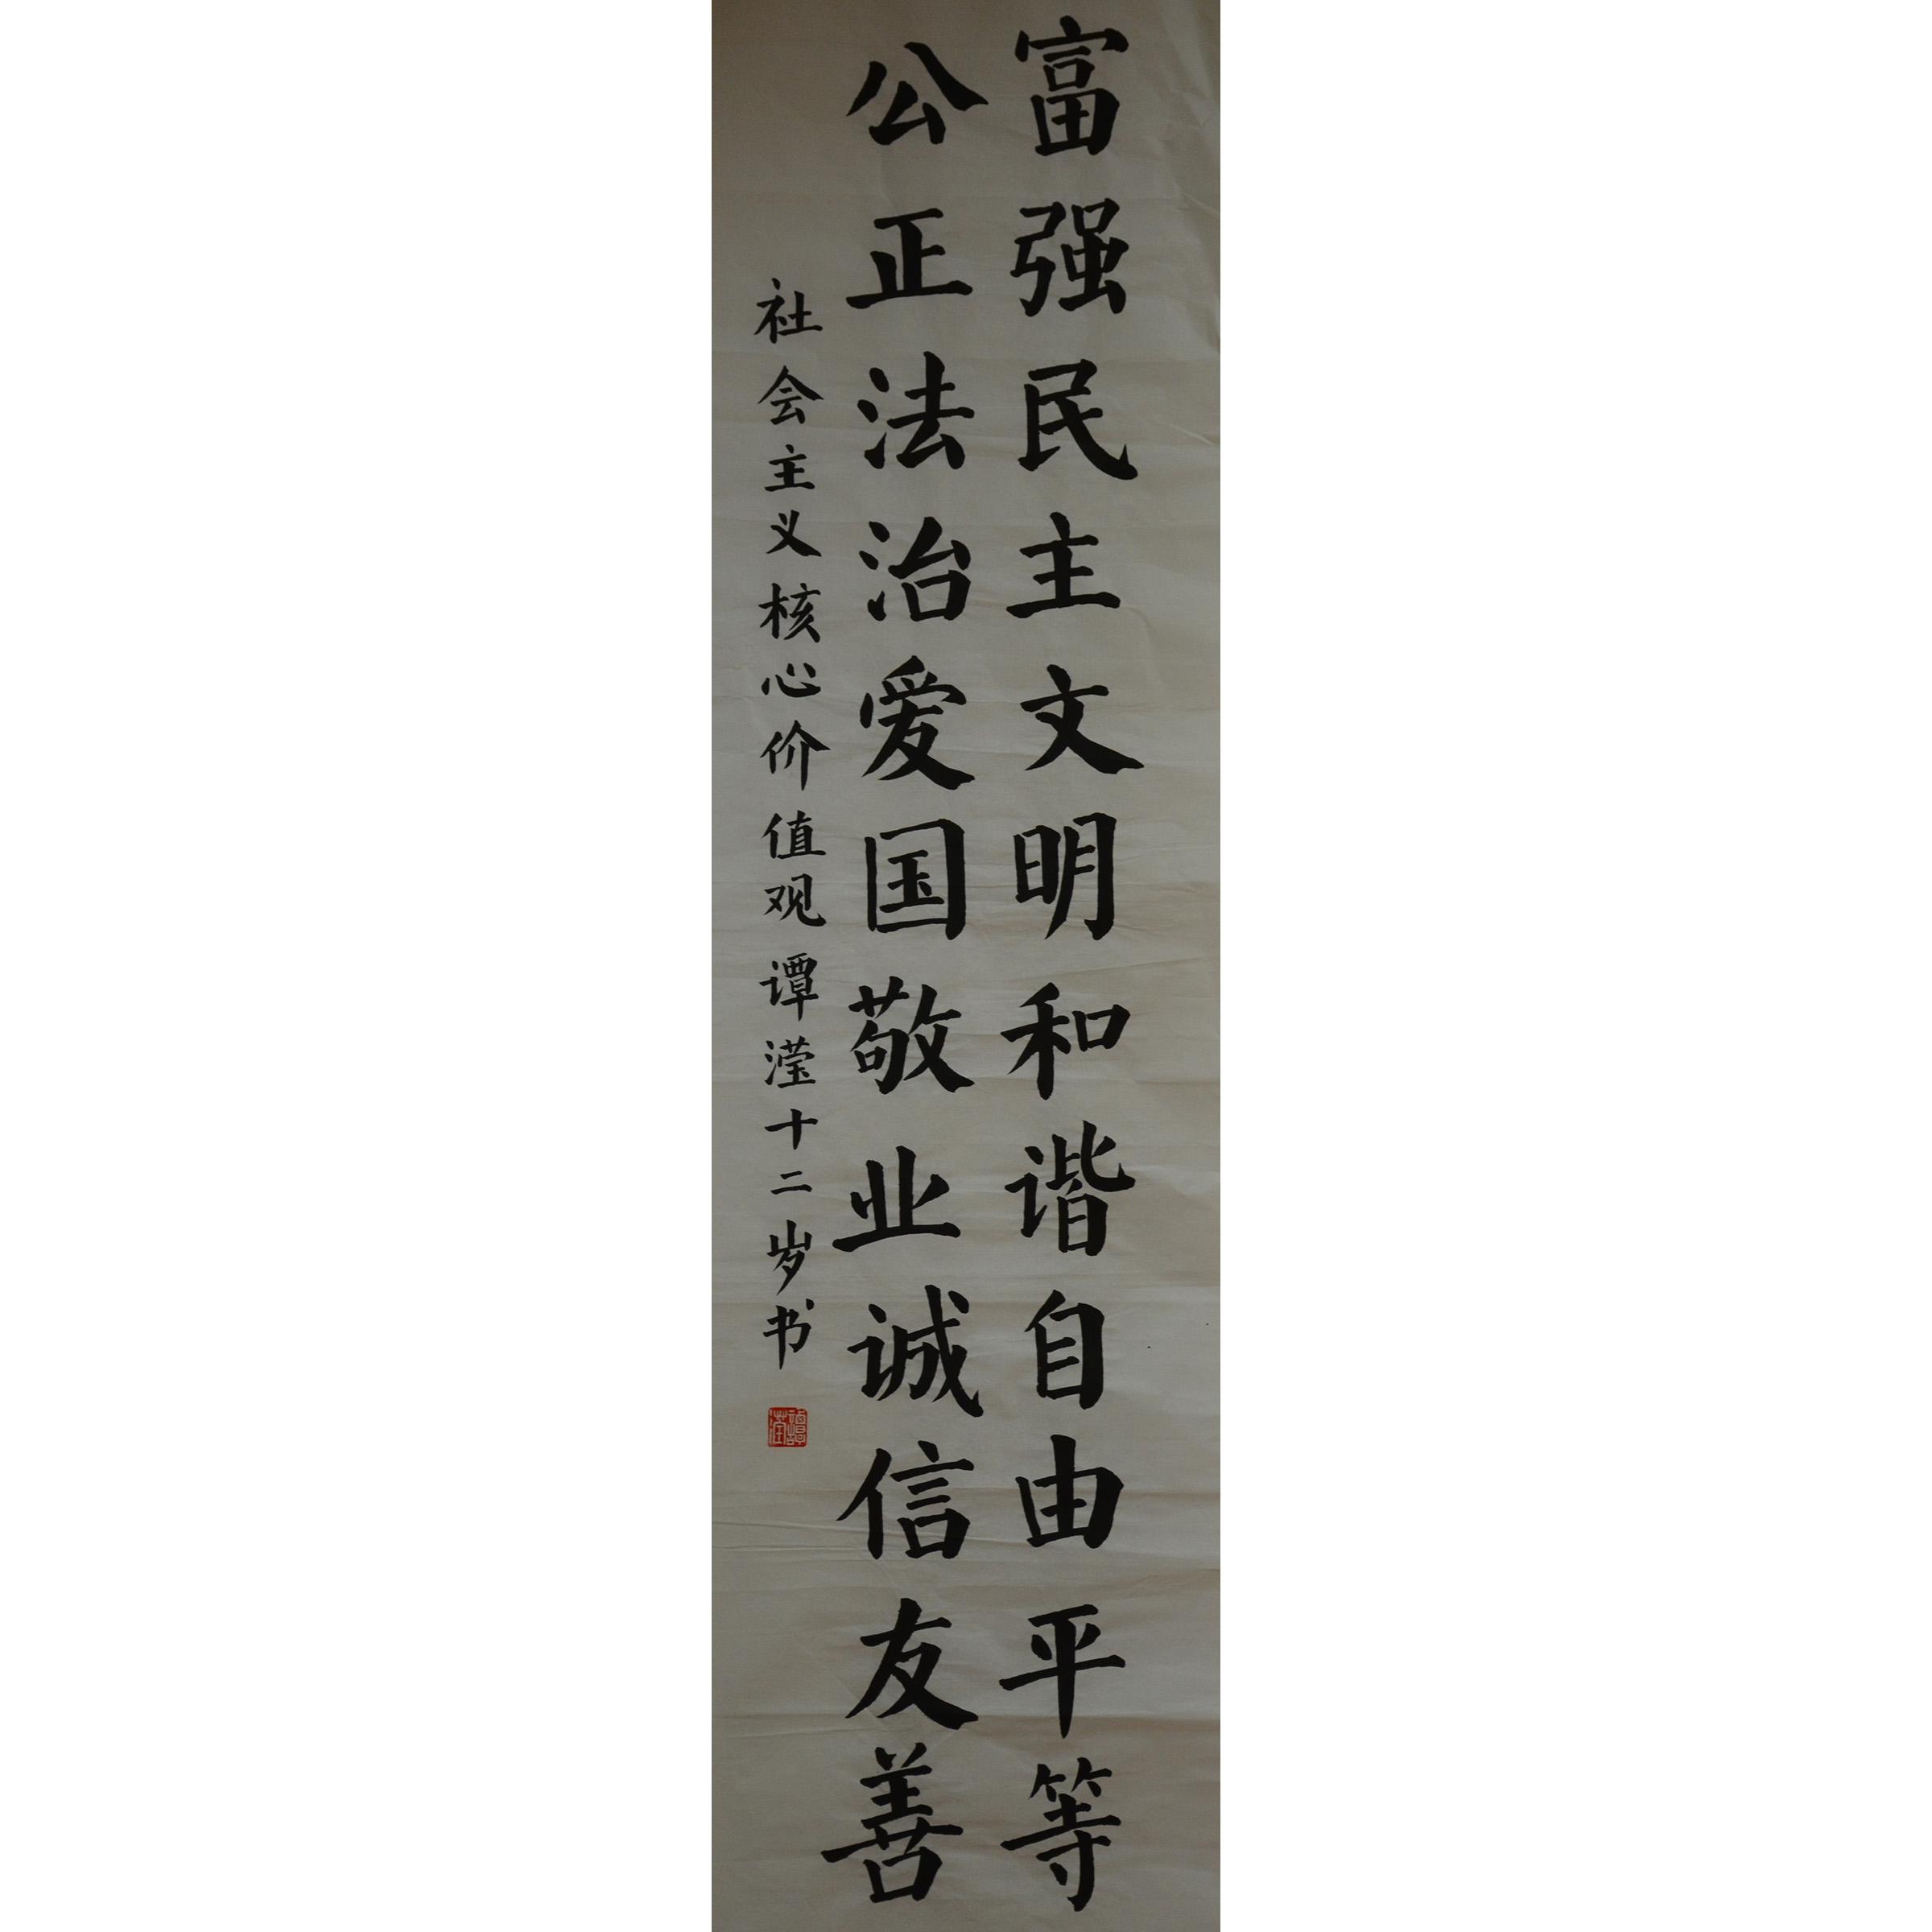 富强民主文明和谐自由平等
公正法治爱国敬业诚信友善
社会主义核心价值观谭滢十二岁书
譚滢